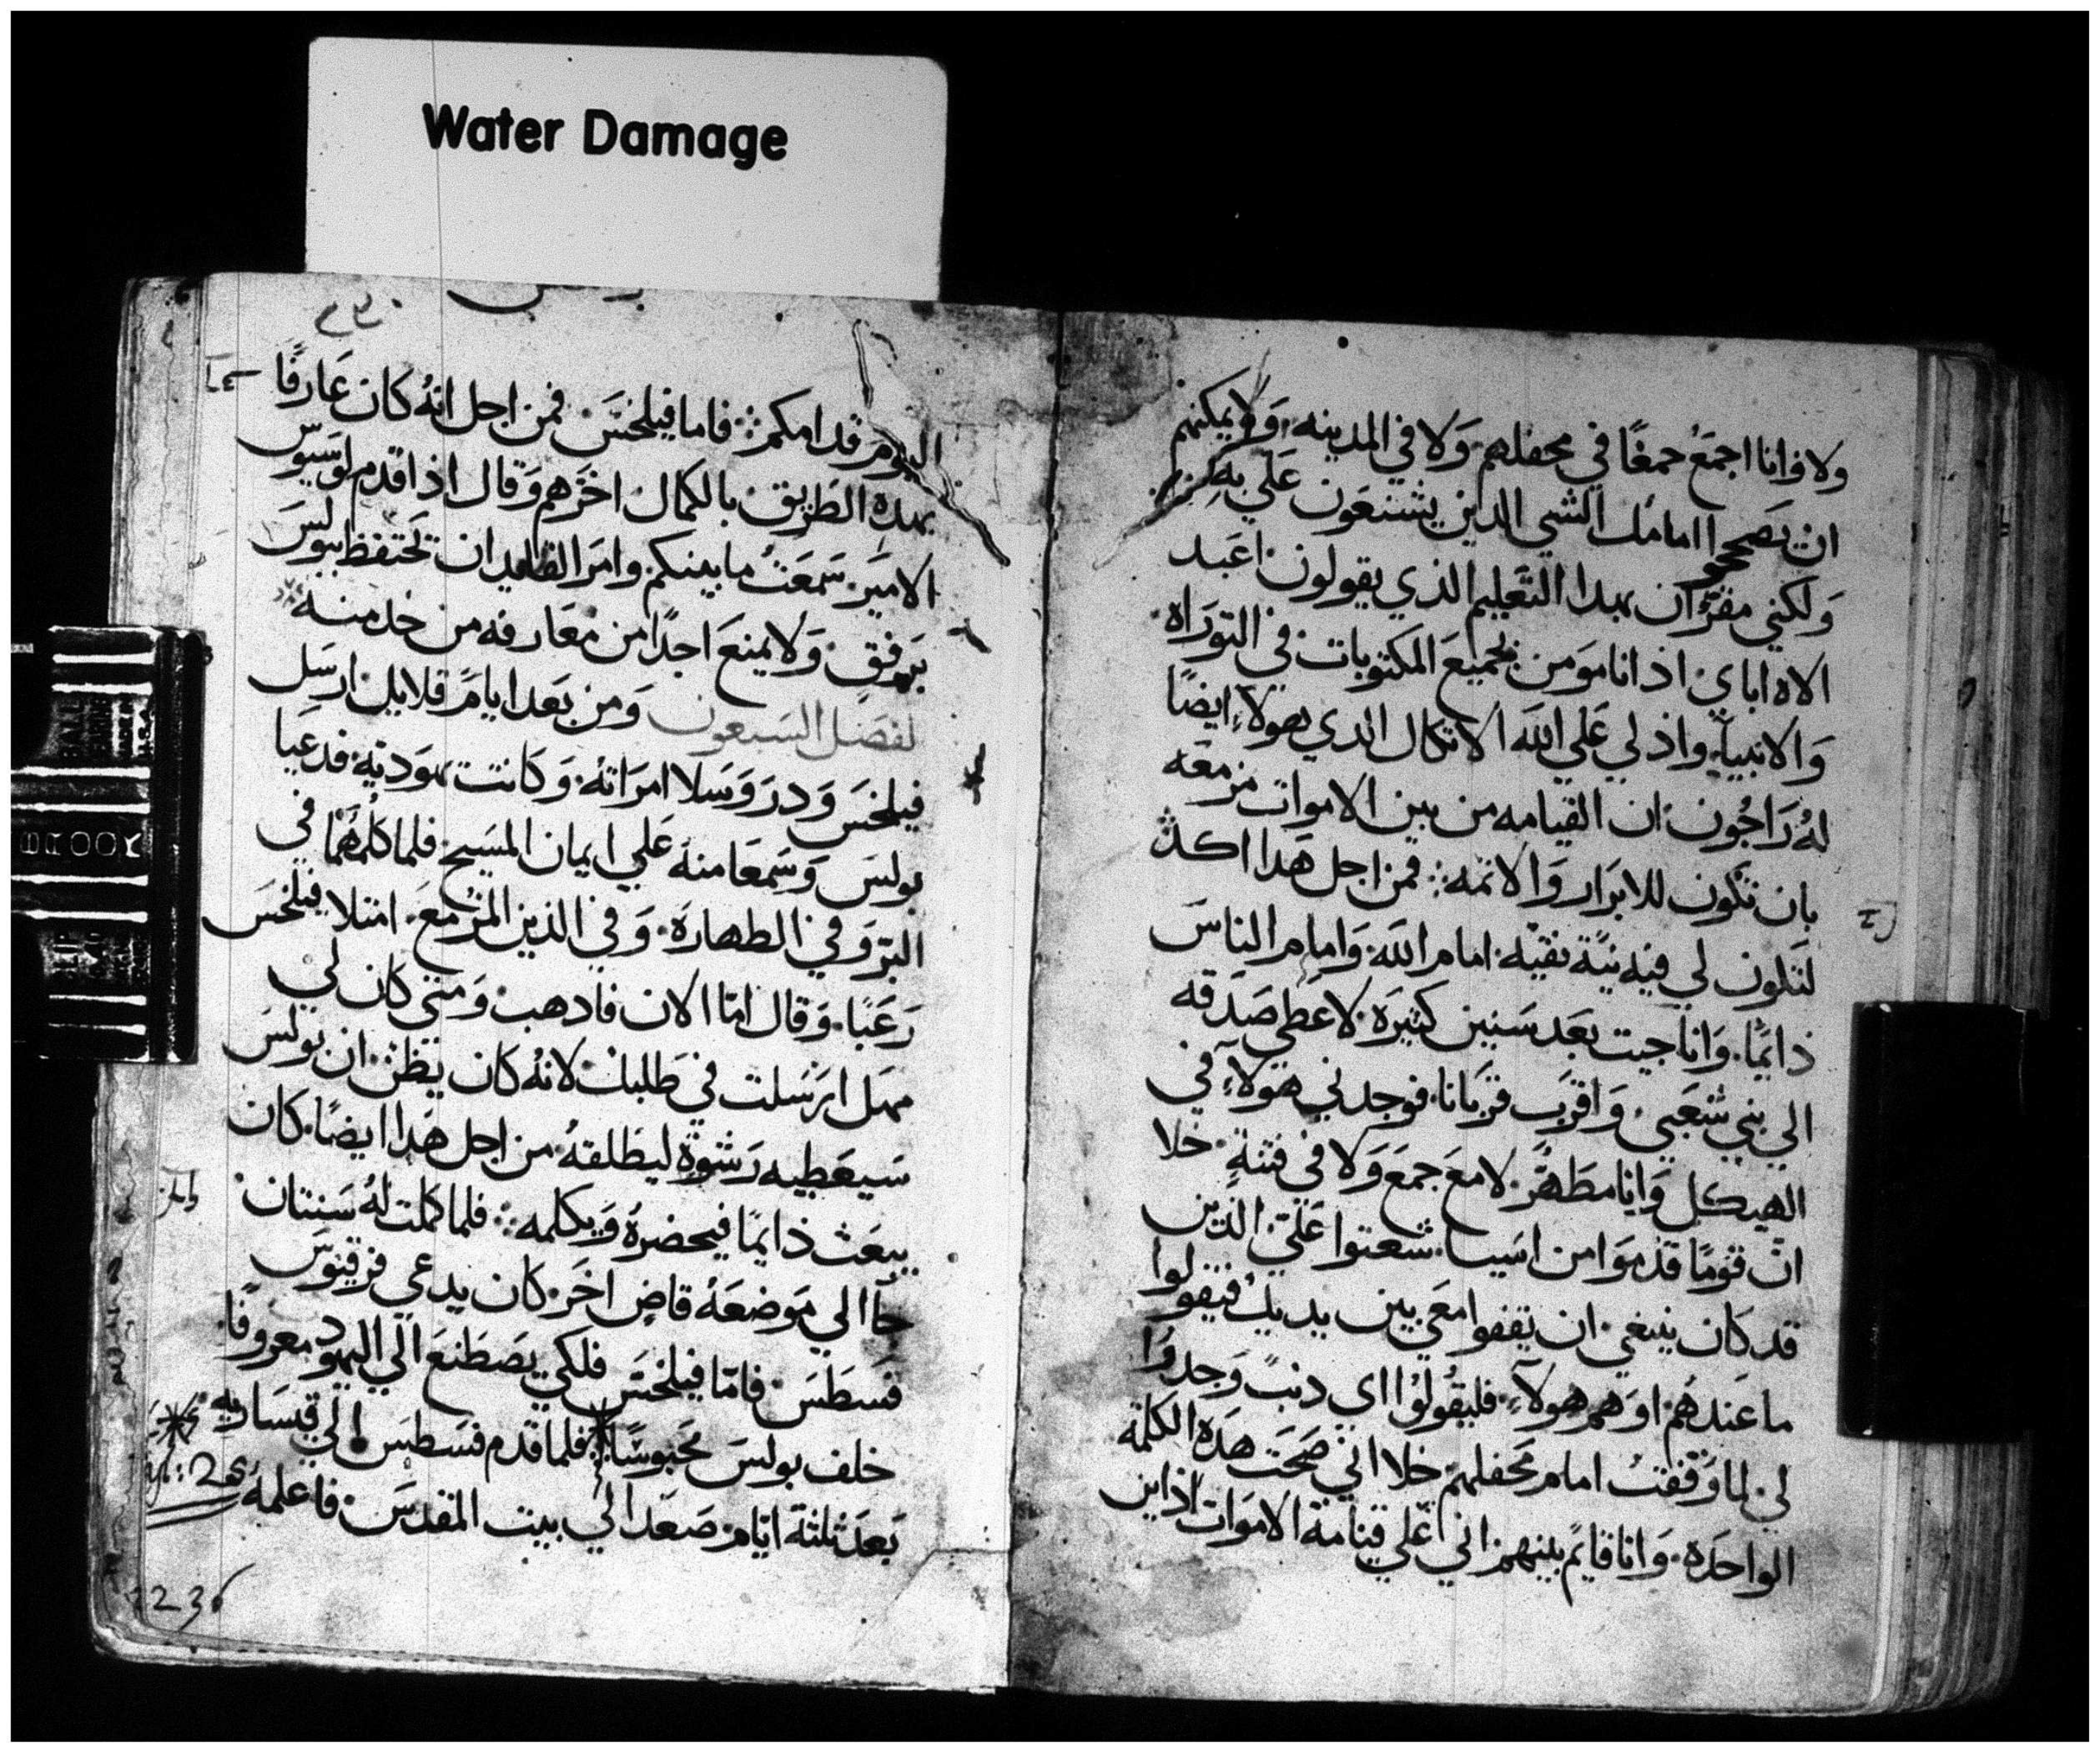 Water Damage
ولا وانا اجمَعُ جمعًا في محفلهم وَلا في المدينه وَلا يمكنهم
ان يصححوا امامك الشي الذين يشنعَون عَلي به
وَلكني مقرٌ ان بهدا التعَليم الذي يقولون اعَبد
الاه اباي اذ انا موَمن بجميعَ المكتوبات في التورَاه
وَالانبيآءِ واذ لي عَلي اللّه الاتكال الدي هولاءِ ايضًا
لهُ رَاجُون ان القيامه من بين الاموات مزمعَه
بان تكون للابرَار وَالاثمه فمن اجل هَدا اكدّ
لتكون لي فيه نيَّة نقيّه امام اللّه وَامام الناسَ
دايمًا وَانا جيت بعَد سَنين كثيرَه لاعَطي صَدَقه
الي بني شعَبي وَاقرَب قرَبانا فوجدني هَولاءِ في
الهيكل وَانا مطَهَّر لا معَ جمعَ وَلا في فتنةٍ خلا
انّ قوَمًا قدموَا من اسيا شعتوا عَليّ الذين
قد كان ينبغي ان يقفوا معَي بين يديك فيقولوا
ما عَندهَم اوَ هم هولآءِ فليقُولوُا اي دنبً وَجدوَا
لي لما وَقفتُ امام محَفلهم خلا اني صَحَت هَدَه الكلمة
الواحدَه وَانا قايم بينهم اني اعَلي قيامة الاموَات اذاين
٢٣٠
اليوم قدامكم فاما فيلخسَ فمن اجل انهُ كان عَارفًا
بهدِه الطَريق بالكمال اخرَهم وَقال اذا قدم لوسَيوس
الامير سَمعَتُ ما بينكم وامرَ القايد ان تحتفظ ببولسَ
برفقٍ وَلا يمنعَ احدًا من مَعَارفه من خدمته
لفصَل السَبعون وَمن بعَد ايامً قلايل ارسَل
فيلخسَ وَدرَوَسَلا امرَاتهُ وَكانت يهوَديةِ فدعَيا
بولسَ وَسَمعَا منهُ عَلي ايمان المسَيح فلما كلمهُمَا في
البرّ وَفي الطهارَه وَفي الدين المزمعَ امتلا فيلخسَ
رَعَبًا وَقال امّا الان فادهب وَمتي كان لي
مهَل ارسَلت في طَلبك لانهُ كان يظنّ ان بولسَ
سَيعَطِيه رَشوَةٍ ليطَلقهُ من اجل هَدا ايضًا كان
يبعَث دايمًا فيحضرهُ وَيكلمه فلما كملت لهُ سَنتان
جآ الي موَضعَهُ قاضٍ اخَر كان يدعي فرقيوسَ
فسَطسَ فامّا فيلخسَ فلكي يصَطَنعَ الي اليهَود معَروفًا
خلف بولسَ محَبوسًا فلما قدم فسَطسَ الي قيسَاريه
بَعَد ثلثة ايّام صَعَد الي بيت المقدسَ فاعَلمهُ
25
236